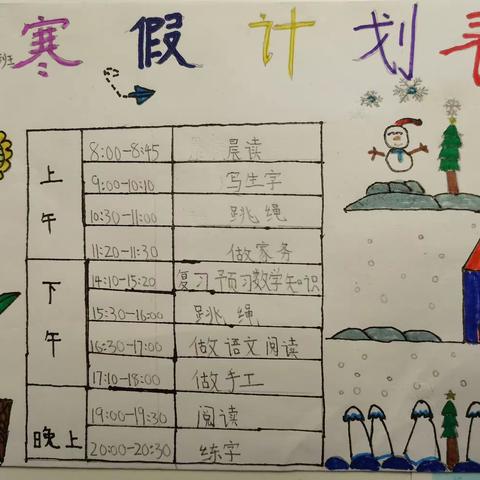 寒假计划表
班
上午
8:00-8:45 晨读
9:00-10:10 写生字
10:30-11:00 跳绳
11:20-11:30 做家务
下午
14:10-15:20 复习预习数学知识
15:30-16:00 跳绳
16:30-17:00 做语文阅读
17:10-18:00 做手工
晚上
19:00-19:30 阅读
20:00-20:30 练字